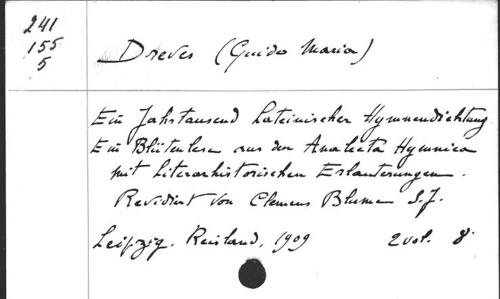 241
155
5
Dreves (Guido Maria)
Ein Jahrtausend Lateinischer Hymnendichtung
Ein Blütenlese aus den Analecta Hymnica
mit Literarhistorischen Erlauterungen.
Revidirt von Clemens Blume S.J.
Leipzig. Reisland, 1909 2 vol. 8°